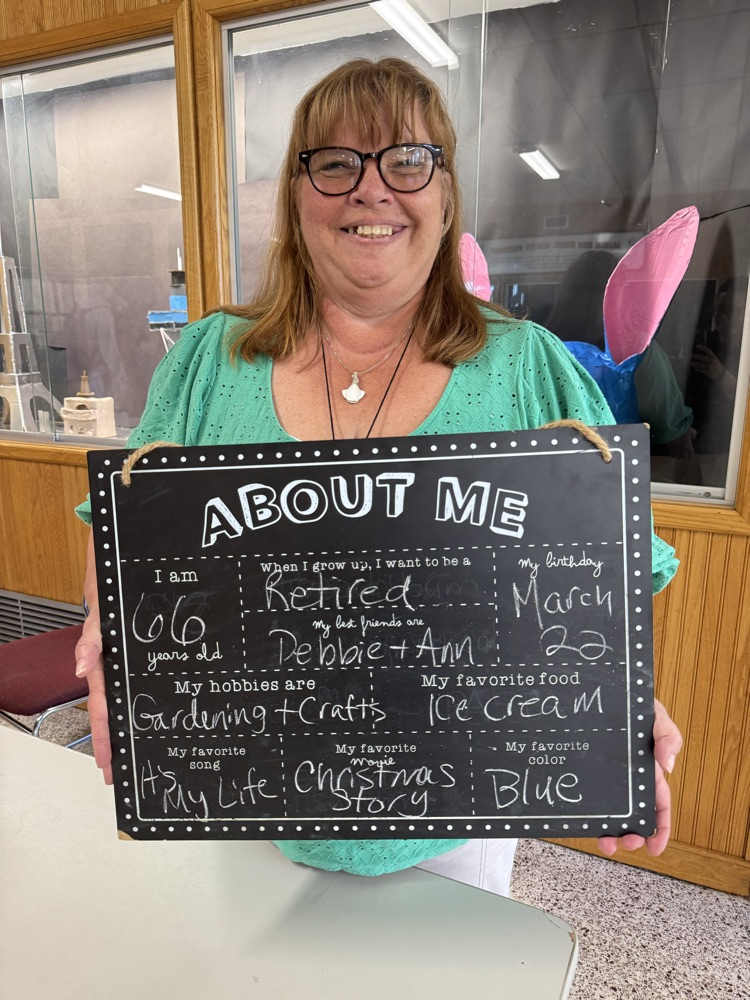 ABOUT ME
I am
66
years old
When I grow up, I want to be a
Retired
My best friends are
Debbie + Ann
My birthday
March
22
My hobbies are
Gardening + Crafts
My favorite food
Ice cream
My favorite
song
It's
My Life
My favorite
Movie
Christmas
Story
My favorite
color
Blue